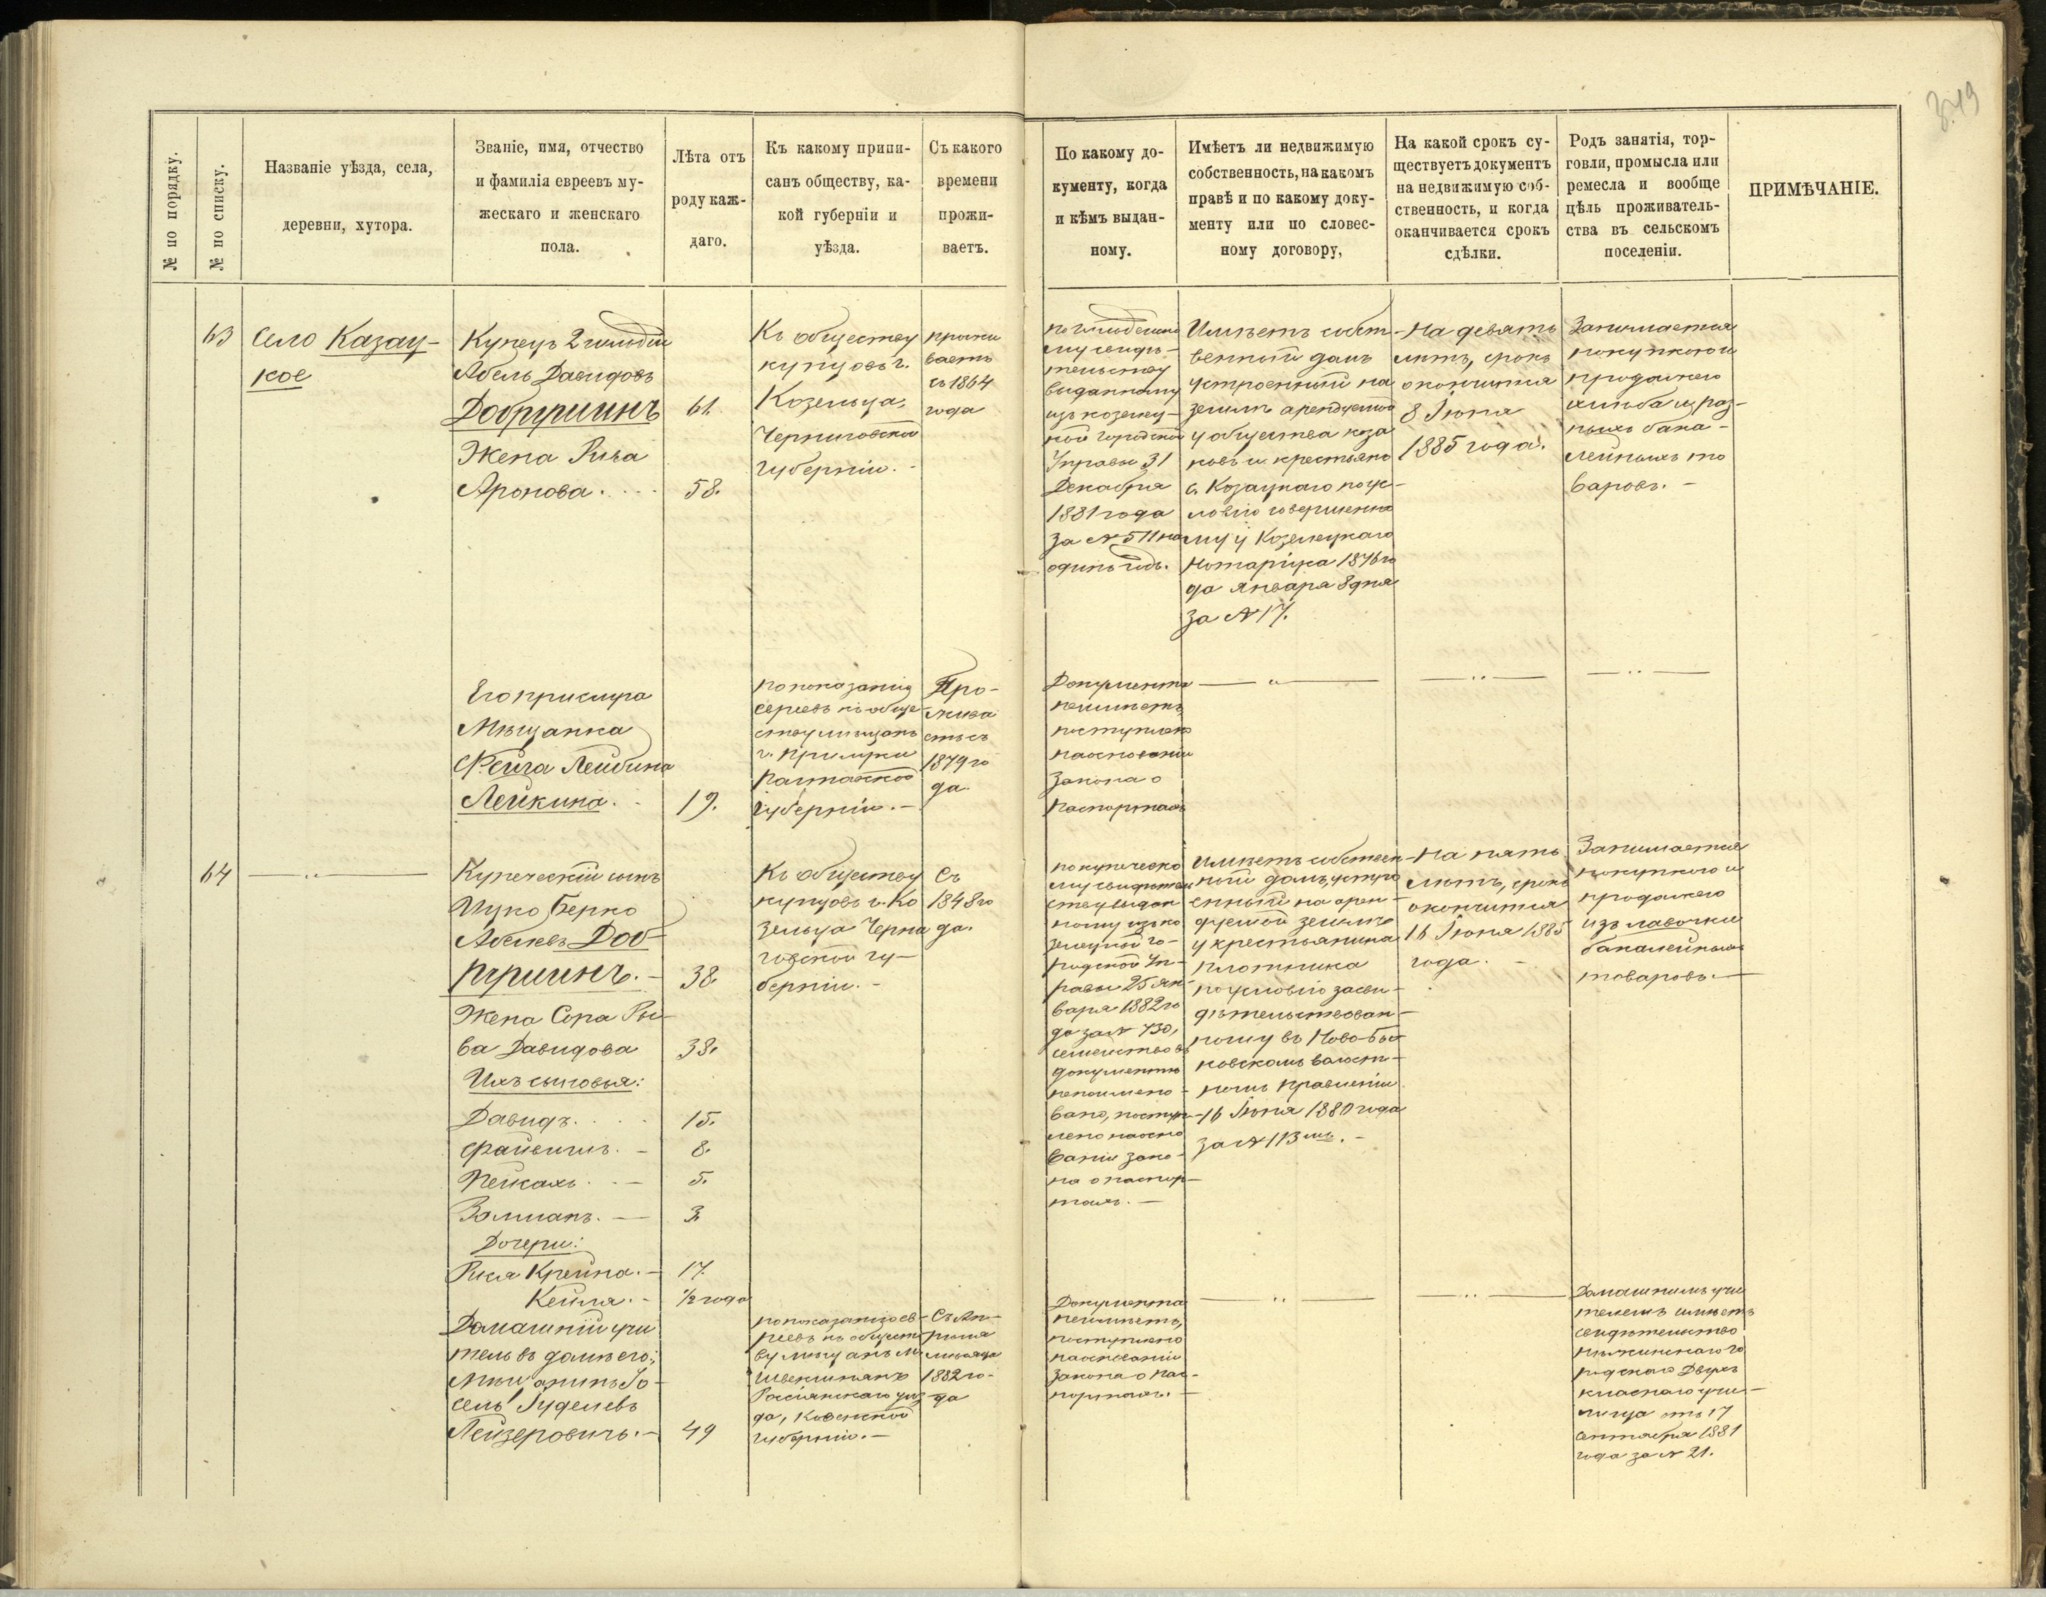 349
№ по порядку.
№ по списку.
Названіе уѣзда, села,
деревни, хутора.
Званіе, имя, отчество
и фамилія евреевъ му-
жескаго и женскаго
пола.
Лѣта отъ
роду каж-
даго.
Къ какому припи-
санъ обществу, ка-
кой губерніи и
уѣзда.
Съ какого
времени
прожи-
ваетъ.
По какому до-
кументу, когда
и кѣмъ выдан-
ному.
Имѣетъ ли недвижимую
собственность, на какомъ
правѣ и по какому доку-
менту или по словес-
ному договору,
На какой срокъ су-
ществуетъ документъ
на недвижимую соб-
ственность, и когда
оканчивается срокъ
сдѣлки.
Родъ занятія, тор-
говли, промысла или
ремесла и вообще
цѣль проживатель-
ства въ сельскомъ
поселеніи.
ПРИМѢЧАНІЕ.
63
Село Казац-
кое
Купецъ 2 гильдіи
Абель Давидовъ
Добрушинъ
61.
Жена Рива
Аронова.
58.
Къ обществу
купцовъ г.
Козельца,
Черниговской
губерніи. -
прожи
ваетъ
съ 1864
года
по гильдейско
му свидѣ-
тельству
выданному
изъ козелец-
кой городской
Управы 31
Декабря
1881 года
за № 511 на
одинъ годъ.
Имѣетъ собст-
венный домъ
устроенный на
землѣ арендуемой
у общества коза
ковъ и крестьянъ
с. Козацкаго по ус-
ловію совершенно
му у Козелецкаго
Нотаріуса 1876 го
да Января 8 дня
за № 17.
На девять
лѣтъ, срокъ
окончится
8 Іюня
1885 года.
Занимается
покупкою и
продажею
хлѣба и раз-
ныхъ бака-
лейныхъ то
варовъ. -
Его прислуга
Мѣщанка
Фейга Лейбина
Лейкина.
19.
по показанію
евреевъ къ обще
ству мѣщанъ
г. Прилуки
Полтавской
губерніи. -
Про-
жива
етъ съ
1879 го
да.
Документа
неимѣетъ,
поступлено
на основаніи
Закона о
паспортахъ
64
Купеческій сынъ
Ицко Берко
Абелевъ Доб-
рушинъ. -
38.
Жена Сора Ри-
ва Давидова
38.
Ихъ сыновья:
Давидъ.
15.
Файвишъ. -
8.
Пейсахъ. -
5.
Залманъ. -
3.
Дочери:
Рися Крейна. -
17.
Кейля. -
1/2 года
Къ обществу
купцовъ г. Ко
зельца Черни
говской гу-
берніи. -
Съ
1848 го
да.
по купеческо
му свидѣтель
ству выдан
ному изъ ко
зелецкой го-
родской Уп-
равы 25 Ян-
варя 1882 го
да за № 730,
семейство въ
документѣ
непоимено-
вано, поступ-
лено на осно
ваніи зако-
на о паспор-
тахъ. -
Имѣетъ собствен
ный домъ, устро
енный на арен-
дуемой землѣ
у крестьянина
Плотника
по условію засви-
дѣтельствован-
ному въ Ново-Бы-
ковскомъ волост-
номъ правленіи
16 Іюня 1880 года
за № 113 мъ. -
На пять
лѣтъ, срокъ
окончится
16 Іюня 1885
года.
Занимается
покупкою и
продажею
изъ лавочки
бакалейныхъ
товаровъ. -
Домашній учи
тель въ домѣ его:
мѣщанинъ Іо-
сель Гуделевъ
Лейзеровичъ. -
49
по показанію ев-
реевъ къ общест
ву мѣщанъ м.
Россіянскаго уѣз
да, Ковенской
губерніи. -
Съ Ап-
рѣля
мѣсяца
1882 го-
да
Документа
неимѣетъ,
поступлено
на основаніи
Закона о пас-
портахъ. -
Домашнимъ учи
телемъ имѣетъ
свидѣтельство
Нѣжинскаго го
родскаго Двухъ
класнаго учи-
лища отъ 17
Сентября 1881
года за № 21.